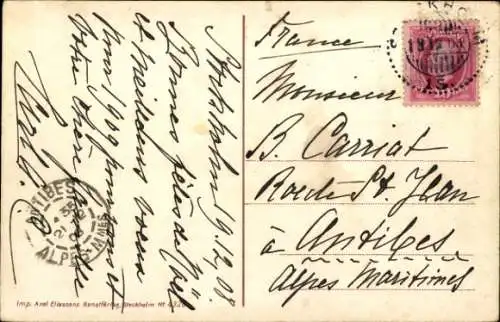 Stockholm 19.12.08.
Bonnes fêtes de Noël
et meilleurs voeux
pour 1909 pour tout et
votre chère famille
France
Monsieur
B. Carriat
Route St. Jean
à Antibes
Alpes Maritimes
ANTIBES
ALPES-MMES
Imp. Axel Eliassons Konstförlag, Stockholm Nº